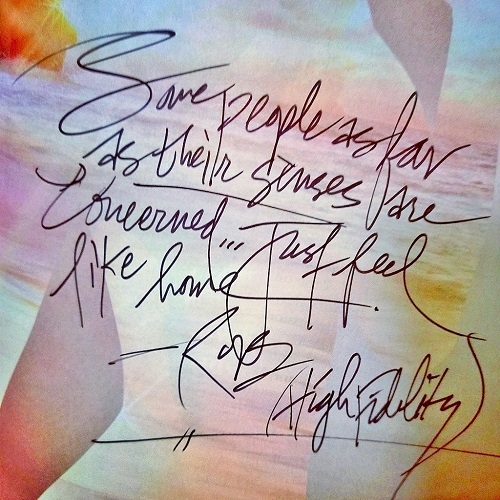 Some people as far
as their senses are
concerned... Just feel
like home.
- Rob
(High Fidelity)